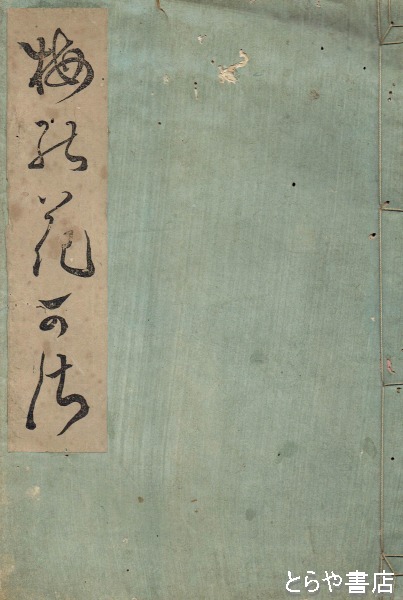 梅能花可佐
とらや書店